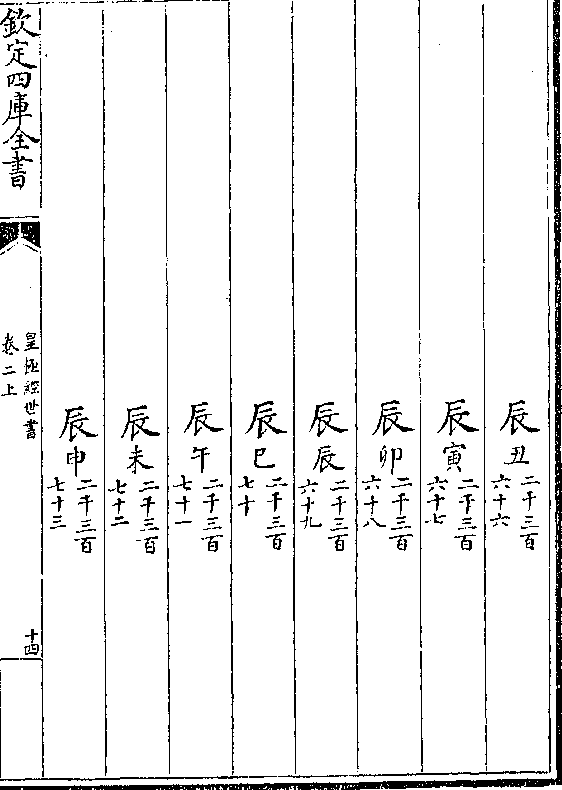 辰丑二千三百六十六
辰寅二千三百六十七
辰卯二千三百六十八
辰辰二千三百六十九
辰巳二千三百七十
辰午二千三百七十一
辰未二千三百七十二
辰申二千三百七十三
欽定四庫全書
皇極經世書
卷二上
十四